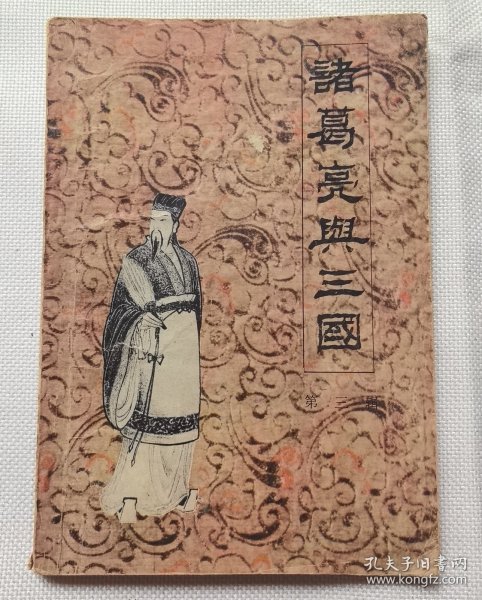 諸葛亮與三國
第三辑
孔夫子旧书网
www.kongfz.com